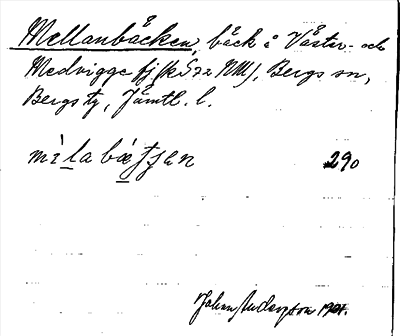 Mellanbäcken, bäck i Väster- och
Medvigge fj. (k 572 NM), Bergs sn,
Bergs tg, Jämtl. l.
mìla bæʃʃen 290
Johan Anderzson 1901.